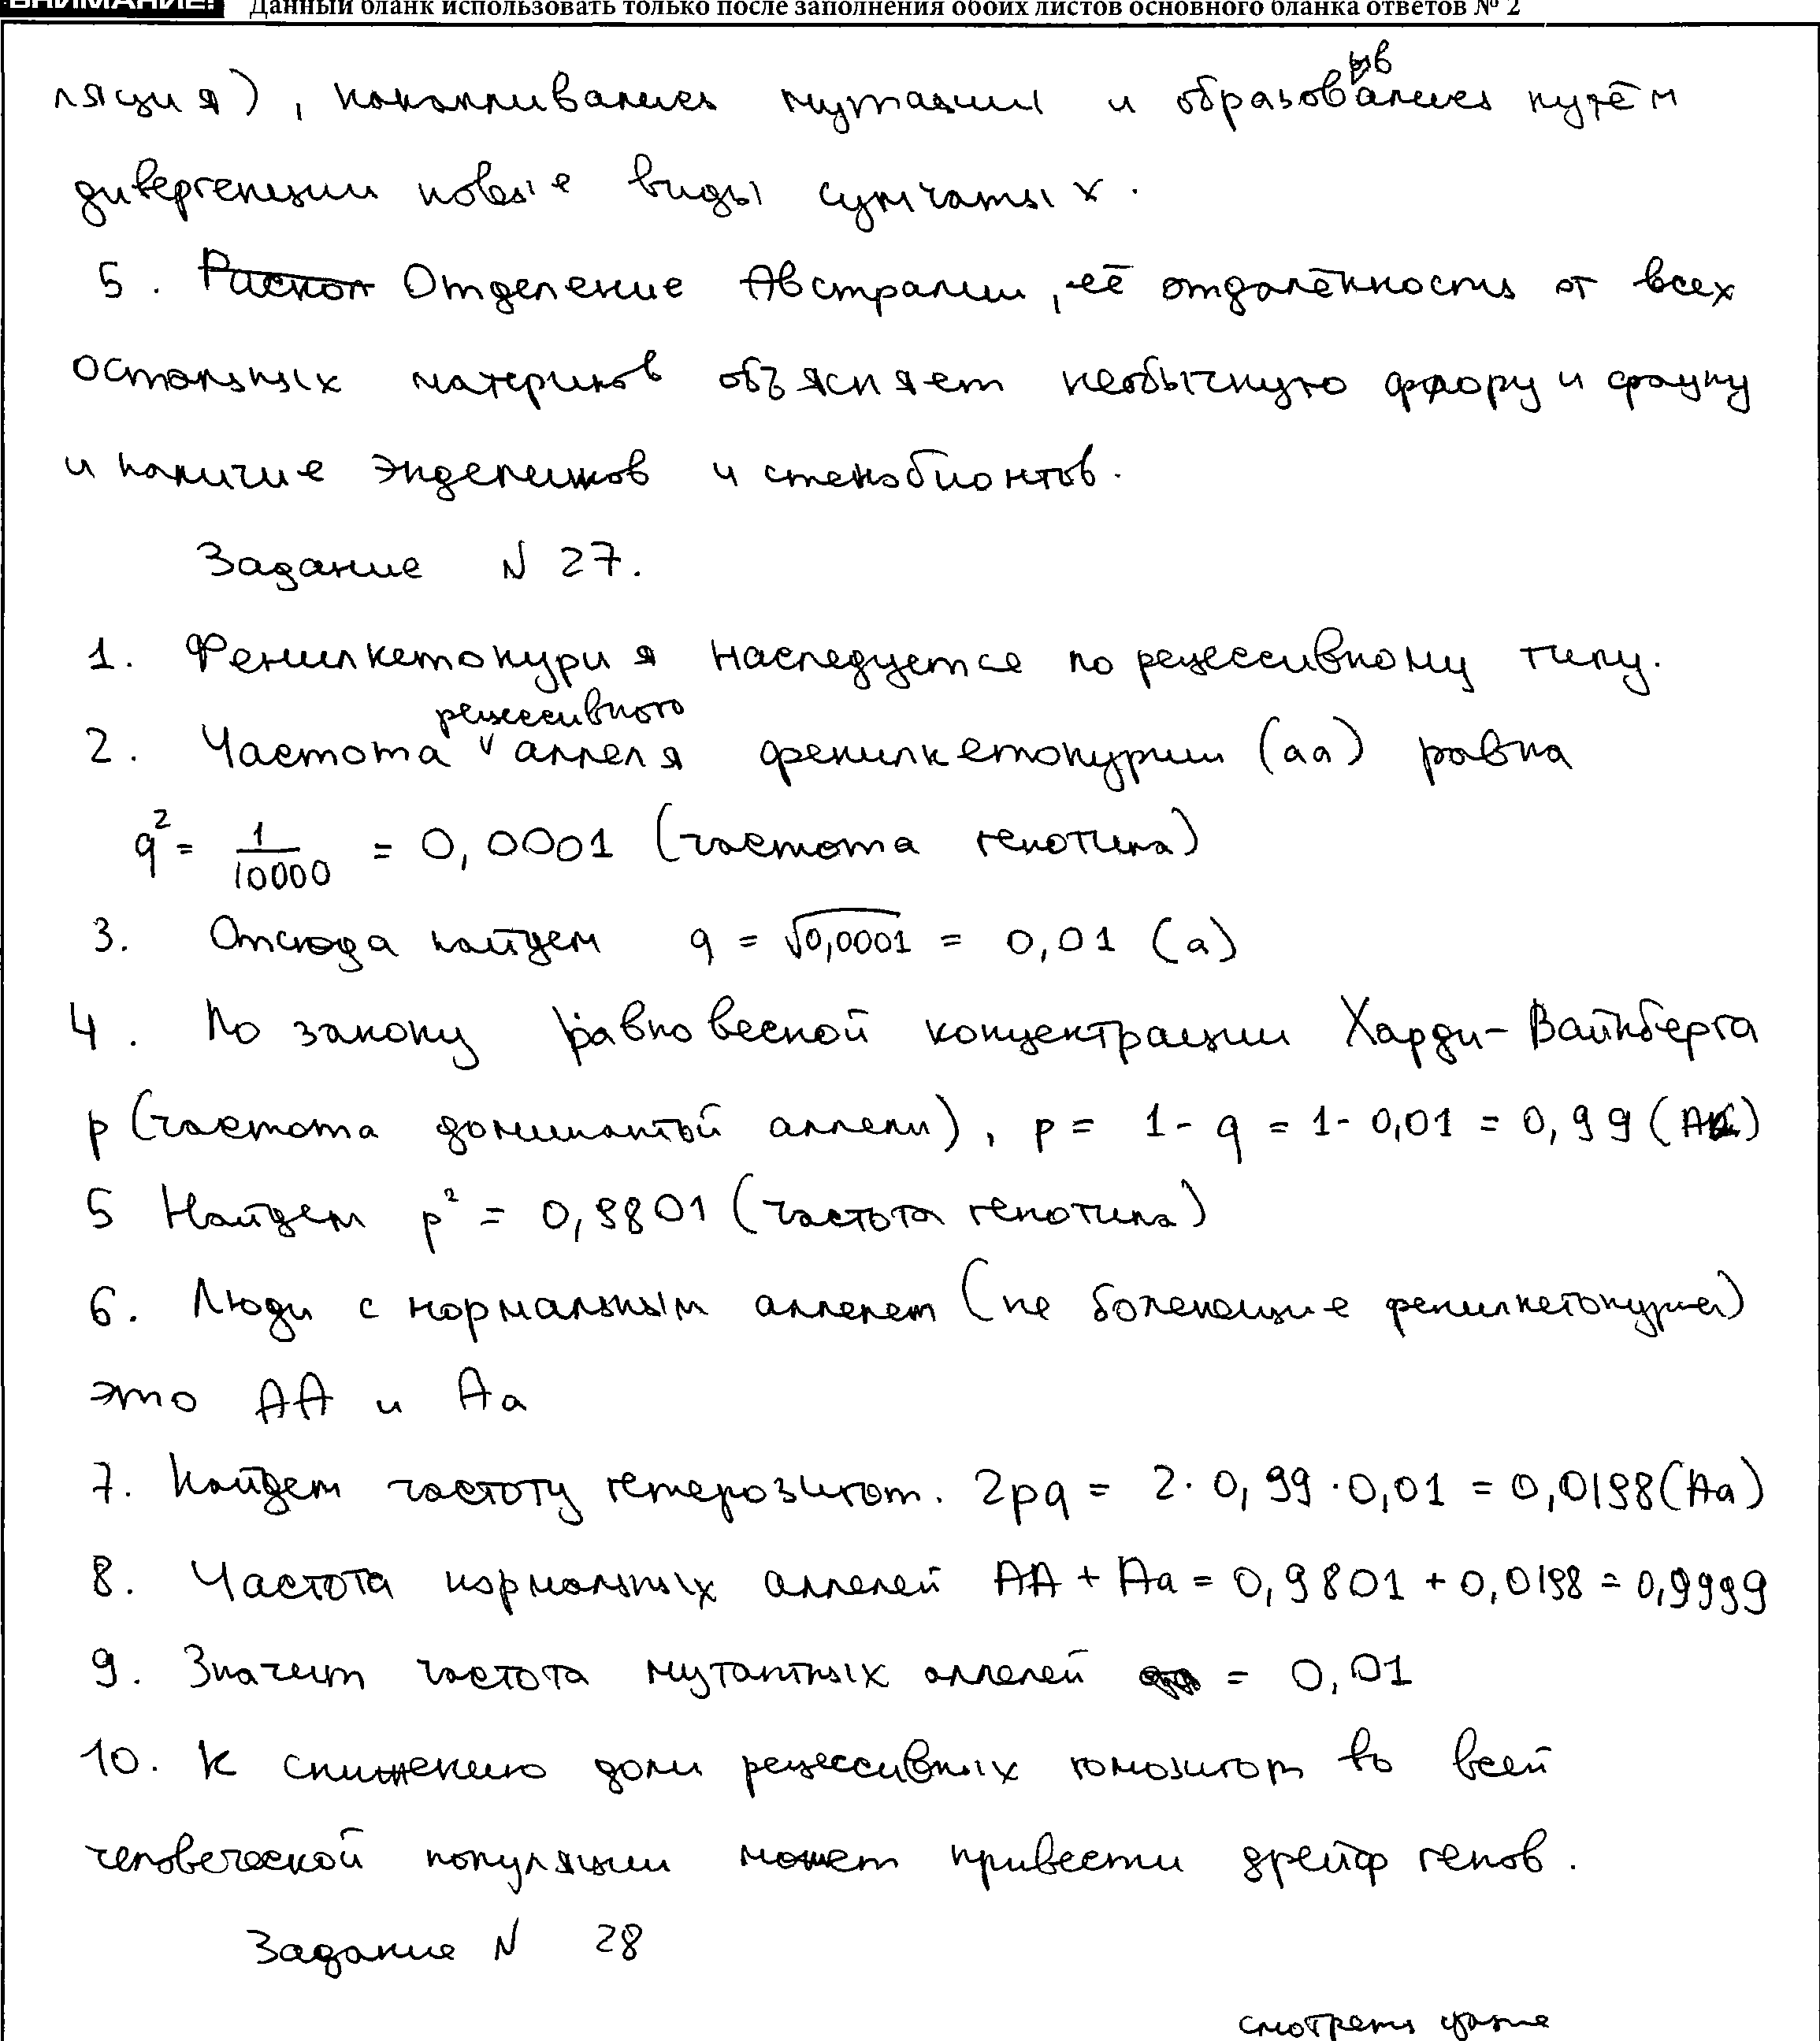 ВНИМАНИЕ! Данный бланк использовать только после заполнения обоих листов основного бланка ответов № 2
ляция), накапливались мутации и образовывались путём
дивергенции новые виды сумчатых.
5. Раскол Отделение Австралии, её отдалённость от всех
остальных материков объясняет необычную флору и фауну
и наличие эндемиков и стенобионтов.
Задание N 27.
1. Фенилкетонурия наследуется по рецессивному типу.
2. Частота рецессивного аллеля фенилкетонурии (аа) равна
q² = 1/10000 = 0,0001 (частота генотипа)
3. Отсюда найдем q = √0,0001 = 0,01 (а)
4. По закону равновесной концентрации Харди-Вайнберга
p (частота доминантной аллели), p = 1 - q = 1 - 0,01 = 0,99 (А)
5 Найдем p² = 0,9801 (частота генотипа)
6. Люди с нормальным аллелем (не болеющие фенилкетонурией)
это АА и Аа
7. Найдем частоту гетерозигот. 2pq = 2·0,99·0,01 = 0,0198 (Аа)
8. Частота нормальных аллелей АА + Аа = 0,9801 + 0,0198 = 0,9999
9. Значит частота мутантных аллелей = 0,01
10. К снижению доли рецессивных гомозигот во всей
человеческой популяции может привести дрейф генов.
Задание N 28
смотреть далее